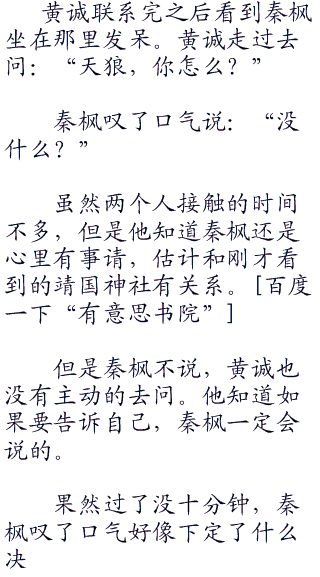 黄诚联系完之后看到秦枫
坐在那里发呆。黄诚走过去
问：“天狼，你怎么？”
秦枫叹了口气说：“没
什么？”
虽然两个人接触的时间
不多，但是他知道秦枫还是
心里有事请，估计和刚才看
到的靖国神社有关系。[百度
一下“有意思书院”]
但是秦枫不说，黄诚也
没有主动的去问。他知道如
果要告诉自己，秦枫一定会
说的。
果然过了没十分钟，秦
枫叹了口气好像下定了什么
决